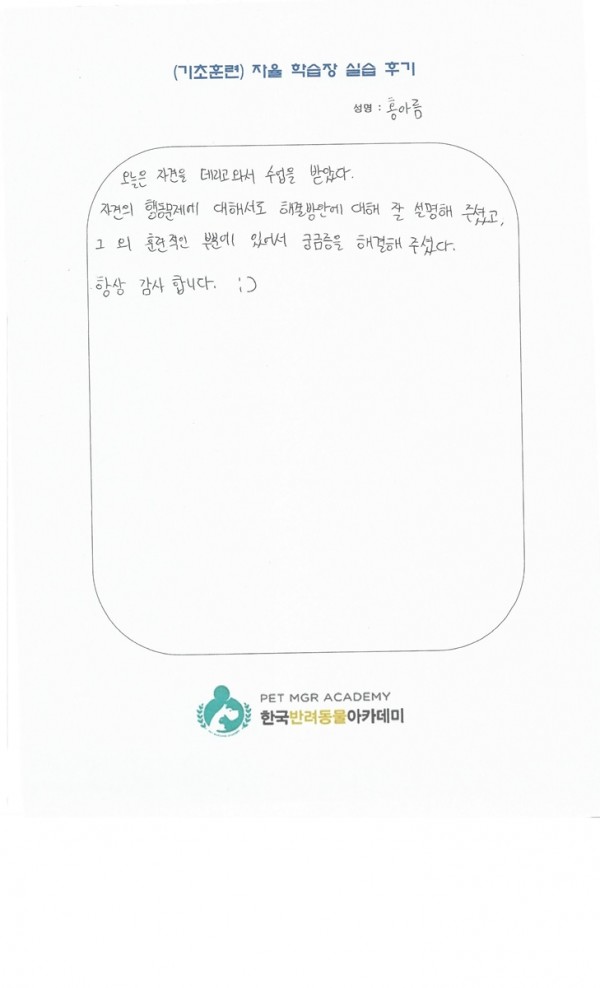 (기초훈련) 자율 학습장 실습 후기
성명 : 홍아름
오늘은 자견을 데리고와서 수업을 받았다.
자견의 행동문제에 대해서도 해결방안에 대해 잘 설명해 주셨고,
그 외 훈련적인 부분에 있어서 궁금증을 해결해 주셨다.
항상 감사 합니다. ;)
PET MGR ACADEMY
한국반려동물아카데미